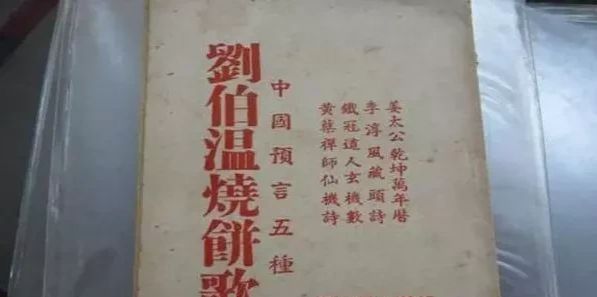 姜太公乾坤萬年曆
李淳風藏頭詩
鐵冠道人玄機數
黃蘗禪師仙機詩
中國預言五種
劉伯温燒餅歌